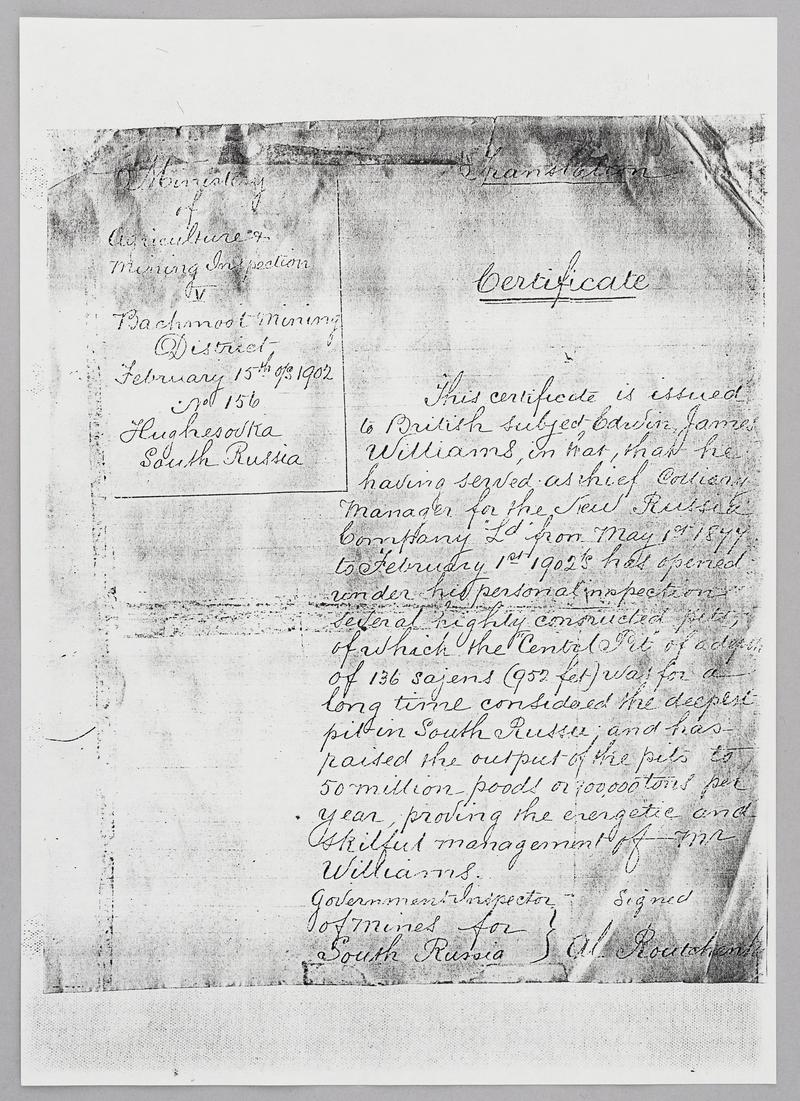 Ministery
of
Agriculture &
Mining Inspection
V
Bachmoot Mining
District
February 15th o/s 1902
No 156
Hughesovka
South Russia
Translation
Certificate
This certificate is issued
to British subject Edwin James
Williams, in that, that he
having served as chief Colliery
Manager for the New Russia
Company Ld from May 1st 1877
to February 1st 1902 has opened
under his personal inspection
several highly constructed pits,
of which the "Central Pit" of a depth
of 136 sajens (952 feet) was for a
long time considered the deepest
pit in South Russia, and has
raised the output of the pits to
50 million poods or tons per
year, proving the energetic and
skilful management of Mr
Williams.
Government Inspector
of Mines for
South Russia
Signed
Al. Routchenk